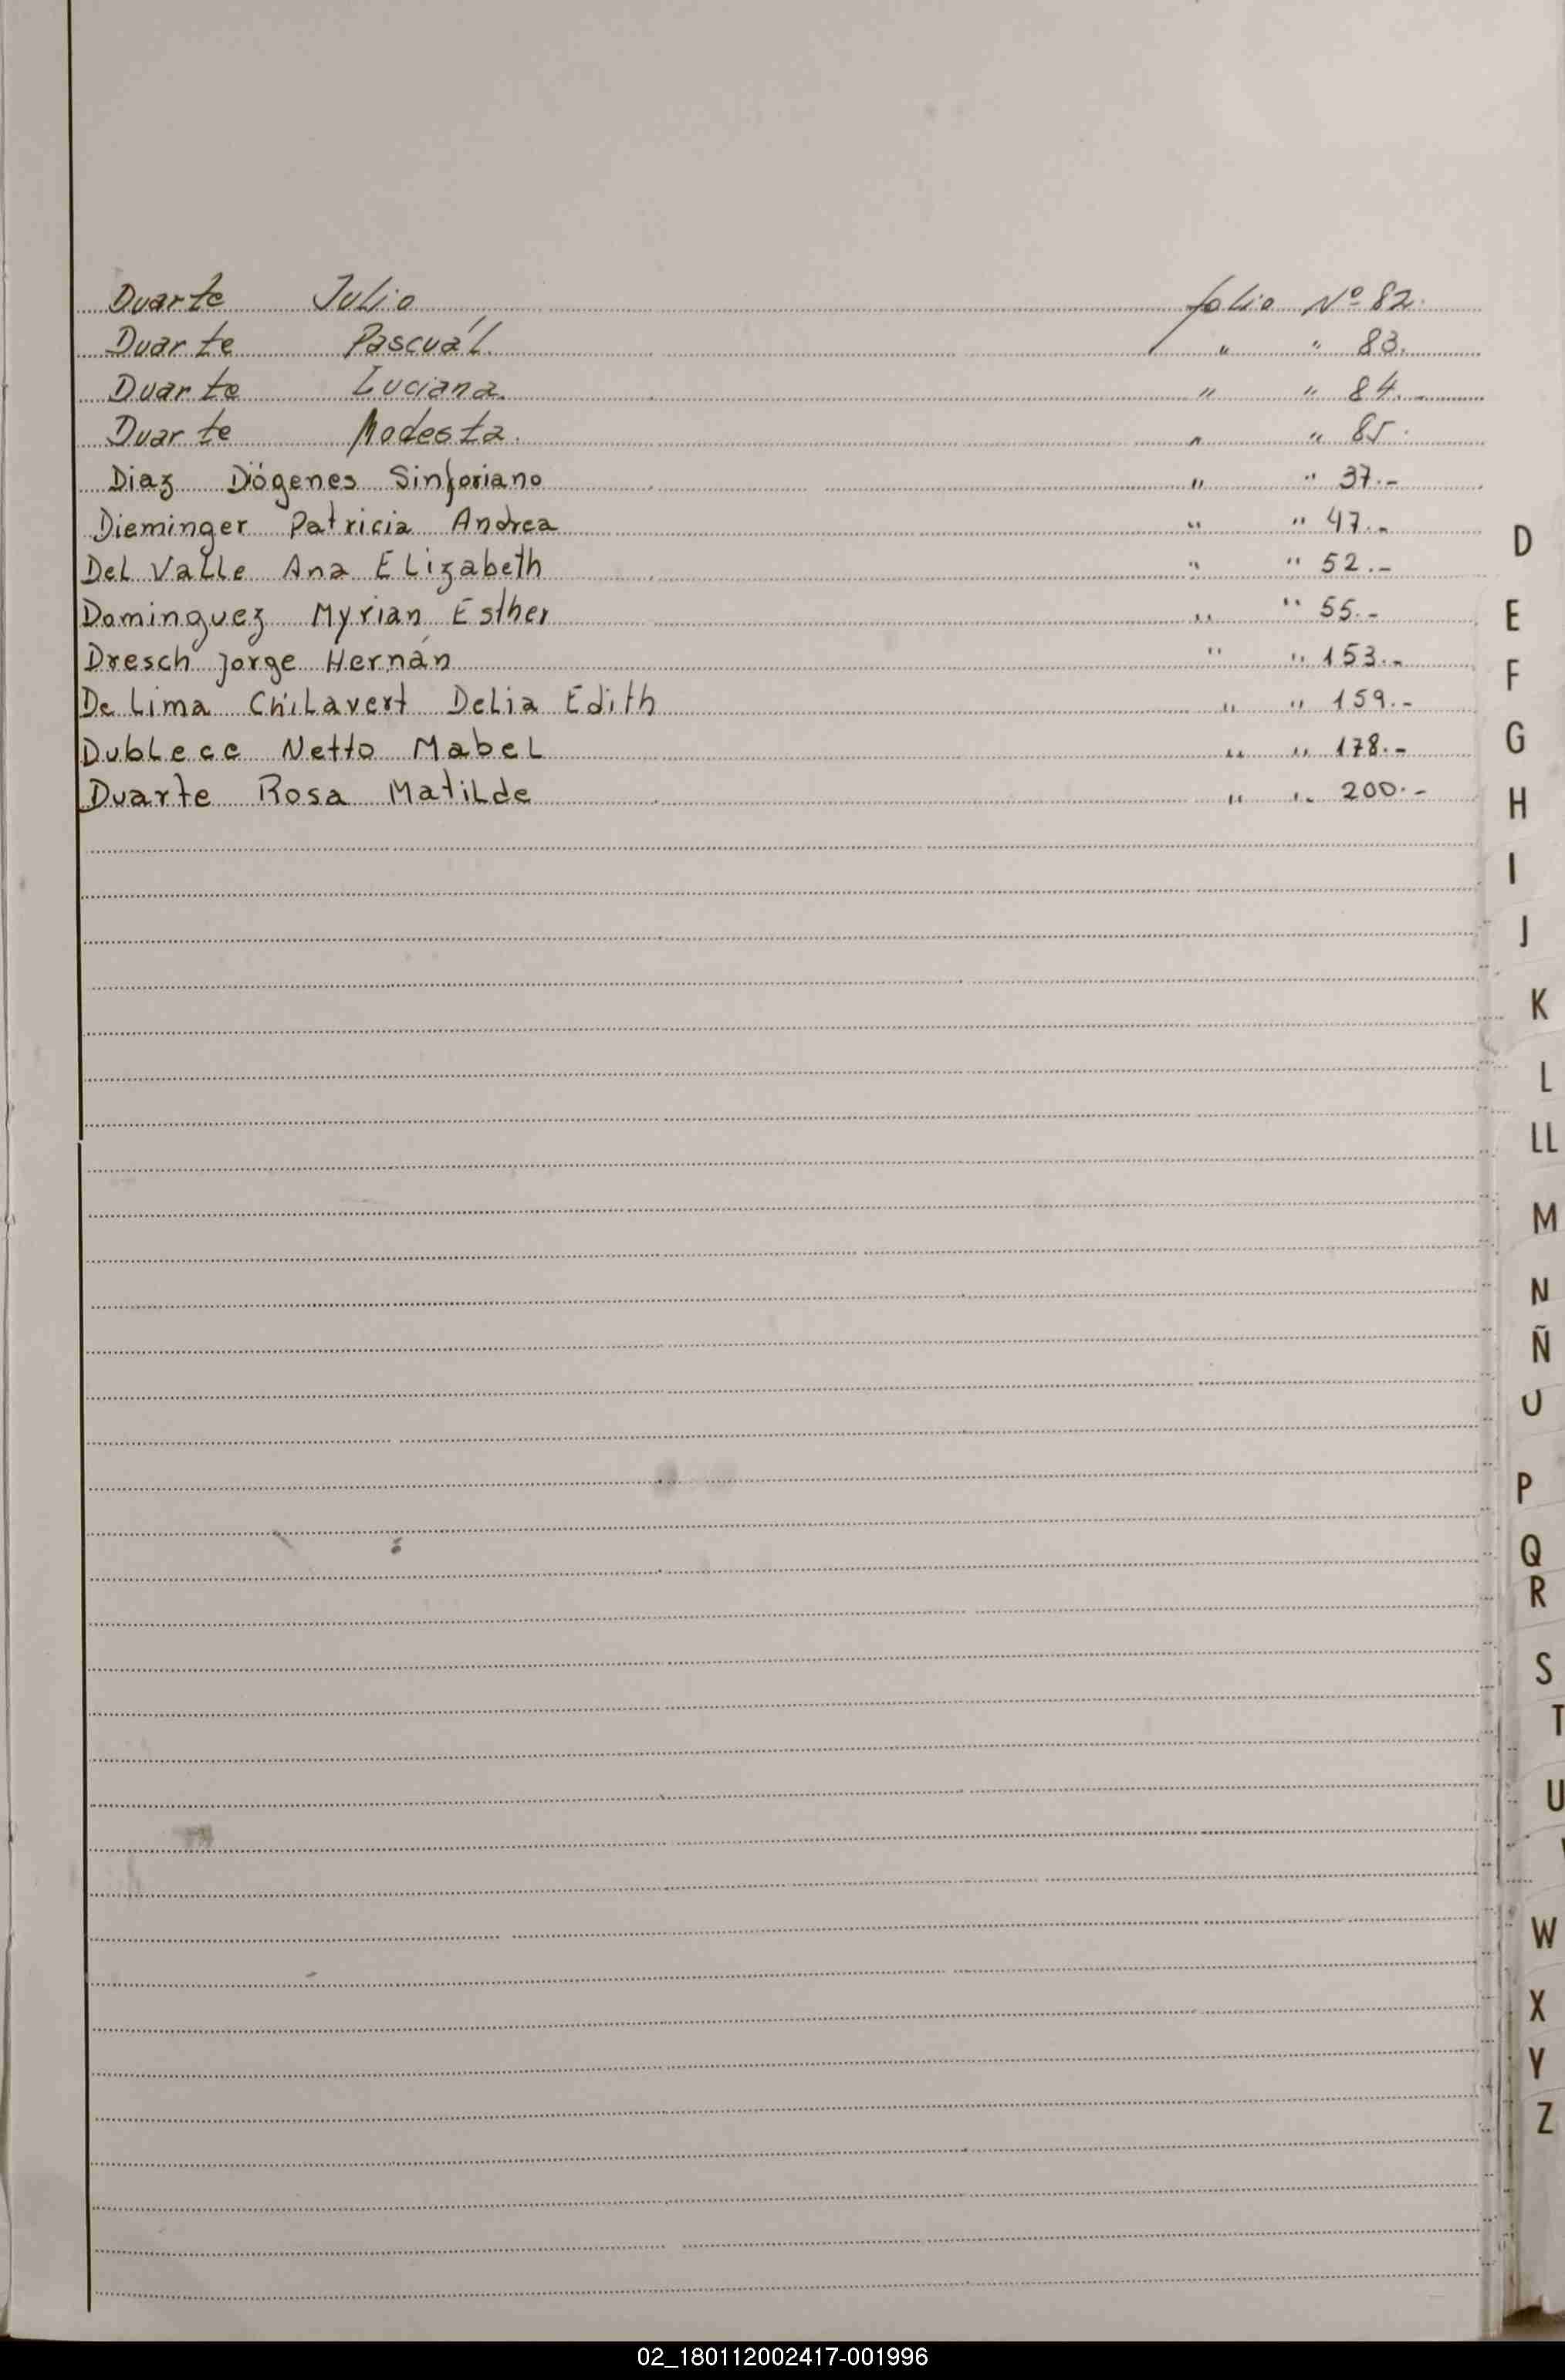 Duarte Julio folio Nº 82.
Duarte Pascuál " " 83.
Duarte Luciana. " " 84.
Duarte Modesta. " " 85.
Diaz Diógenes Sinforiano " " 37.-
Dieminger Patricia Andrea " " 47.-
Del Valle Ana Elizabeth " " 52.-
Dominguez Myrian Esther " " 55.-
Dresch Jorge Hernán " " 153.-
De Lima Chilavert Delia Edith " " 159.-
Dublecc Netto Mabel " " 178.-
Duarte Rosa Matilde " " 200.-
D
E
F
G
H
I
J
K
L
LL
M
N
Ñ
O
P
Q
R
S
T
U
W
X
Y
Z
02_180112002417-001996